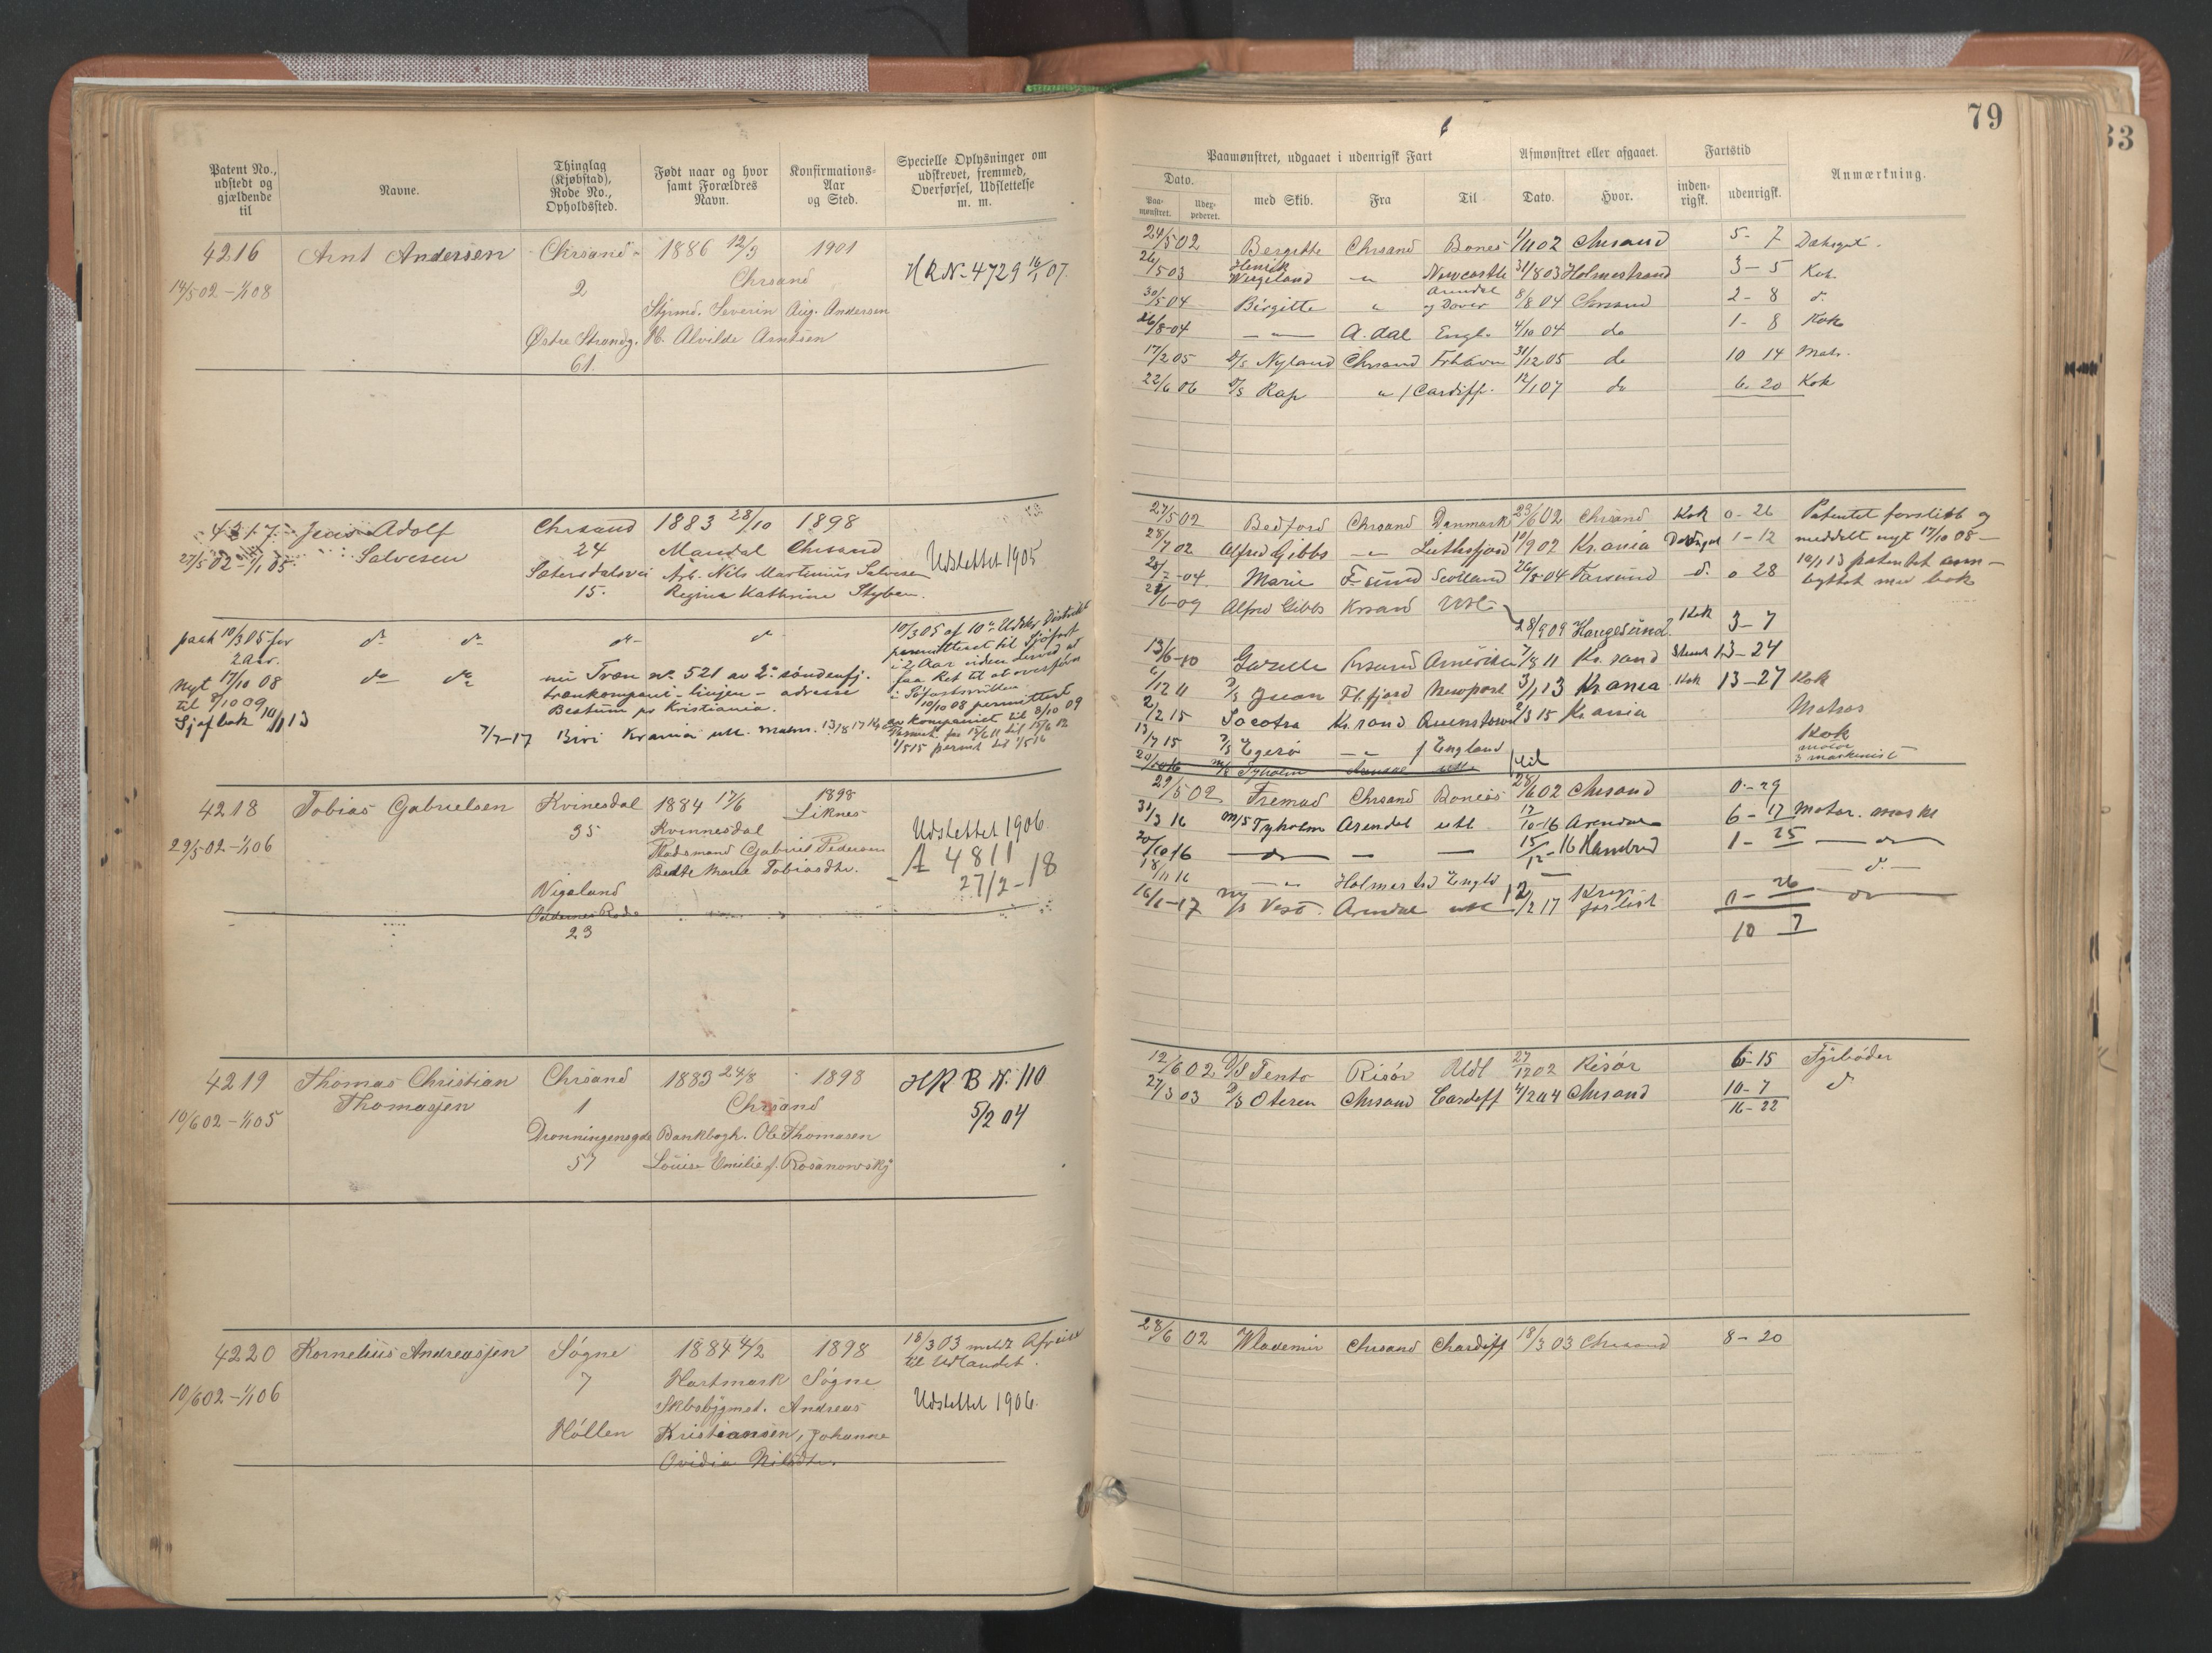 79
33
Patent No., udstedt og gjældende til
Navne.
Thinglag (Kjøbstad), Rode No., Opholdssted.
Født naar og hvor samt Forældres Navn.
Konfirmations-Aar og Sted.
Specielle Oplysninger om udskrevet, fremmed, Overførsel, Udslettelse m. m.
Paamønstret, udgaaet i udenrigsk Fart
Afmønstret eller afgaaet.
Fartstid
Anmærkning.
Dato.
Paa-mønstret.
Udex-pederet.
med Skib.
Fra
Til
Dato.
Hvor.
inden-rigsk.
udenrigsk.
4216 Arnt Andersen Chrsand 1886 12/3 1901
14/5 02 - 1/1 08 2 Chrsand H R N. 4729 16/1 07.
Styrmd. Severin Aug. Andersen
Østre Strandg. H. Alvilde Arntsen
61.
24/5 02 Bergitte Chrsand Bones 1/11 02 Chrsand 5 - 7
26/5 03 Henrik Wergeland " Newcastle 31/8 03 Holmestrand 3 - 5 Kok
30/5 04 Birgitte " Arendal og Dover 8/8 04 Chrsand 2 - 8 d.
26/8 - 04 - " - A. dal Engl. 4/10 04 do 1 - 8 Kok
17/2 05 D/S Nyland Chrsand Frhavn 31/12 05 do 10 14 Matr.
22/6 06 D/S Kap " / Cardiff. 12/1 07 do 6 - 20 Kok
4217 Jens Adolf Salvesen Chrsand 1883 28/10 1898
27/5 02 - 1/1 05 24 Mandal Chrsand Udslettet 1905
Sætersdalsvei Arb. Nils Martinius Salvesen
15. Regine Kathrine
27/5 02 Bedford Chrsand Danmark 23/6 02 Chrsand Kok 0 - 26 Patentet forslidt og
28/7 02 Alfred Gibbs - " - 10/9 02 Krania 1 - 12 meddelt nyt 17/10 08 -
Marie F-sund Scotland 26/8 04 Farsund d. 0 28 10/1 13 patentet om-
byttet med bok
Alfred Gibbs Krsand Udl.
28/9 09 Haugesund. Kok 3 - 7
13/6 - 10 Gazelle Krsand Amerika 7/8 11 Kr. sand 13 - 24
6/12 11 D/S Juan Newport 3/1 13 Krania Kok 13 - 27 Kok
2/2 15 Socotra Kr. sand Queenstown 2/3 15 Krania Matros
13/7 15 D/S Egerø - " - f England Kok
20/10 16 M/S Tyholm Arendal utl.
10/3 05 for 2 Aar. d. d. d. 10/3 05 af 10de Udskr. Distrikt
permitteret til Sjøfart
i 2 Aar uden derved at
faa Ret til at overføres
Nyt 17/10 08 do do nu Træn no. 521 av 2. søndenfj.
til 8/10 09 trænkompani - linjen - adresse
Sjøf bok 10/1 13 Bestum pr Kristiania.
10/10 08 permitteret
av kompaniet til 8/10 09
1/5 15 permit. til 1/5 16
7/7 - 17
4218 Tobias Gabrielsen Kvinesdal 1884 17/6 1898 Liknes
29/5 02 - 1/1 06 35 Kvinnesdal Udslettet 1906
Gaardmand Gabriel Pedersen A 4811
Berte Marie Tobiasdtr. 27/2 - 18
Vigeland
Oddernes Rode
23
29/5 02 Fremad Chrsand Boness 28/6 02 Chrsand 0 - 29
31/3 16 M/S Tyholm Arendal utl. 17/10 - 16 Arendal 6 - 17 Motor. mask
20/10 16 - do - - - 15/12 - 16 1 - 25 - do -
18/11 16 - " - Holmestrd Engld - d. -
16/1 - 17 M/S Vest. Arendal utl 12/2 17 Krigs forlist 0 - 26 do
10 7
4219 Thomas Christian Thomasjen Chrsand 1883 24/8 1898 H R B N. 110
10/6 02 - 1/1 05 1 Chrsand 5/2 04
Dronningensgde Bankbogh. Ole Thomasen
57 Louise Emilie f. Rosanowsky
12/6 02 D/S Tento Risør Udl 27/12 02 Risør 6 - 15 Fyrbøder
27/3 03 D/S Oteren Chrsand Cardiff 4/2 04 Chrsand 10 - 7 d.
16 - 22
4220 Kornelius Andreasjen Søgne 1884 4/2 1898 18/3 03 meldt Afreist
til Udlandet.
10/6 02 - 1/1 06 7 Hartmark Søgne
Skbsbygmst. Andreas Udslettet 1906.
Høllen Kristiansen, Johanne
Ovidia Nilsdtr.
28/6 02 Wlademir Chrsand Chardiff 18/3 03 Chrsand 8 - 20